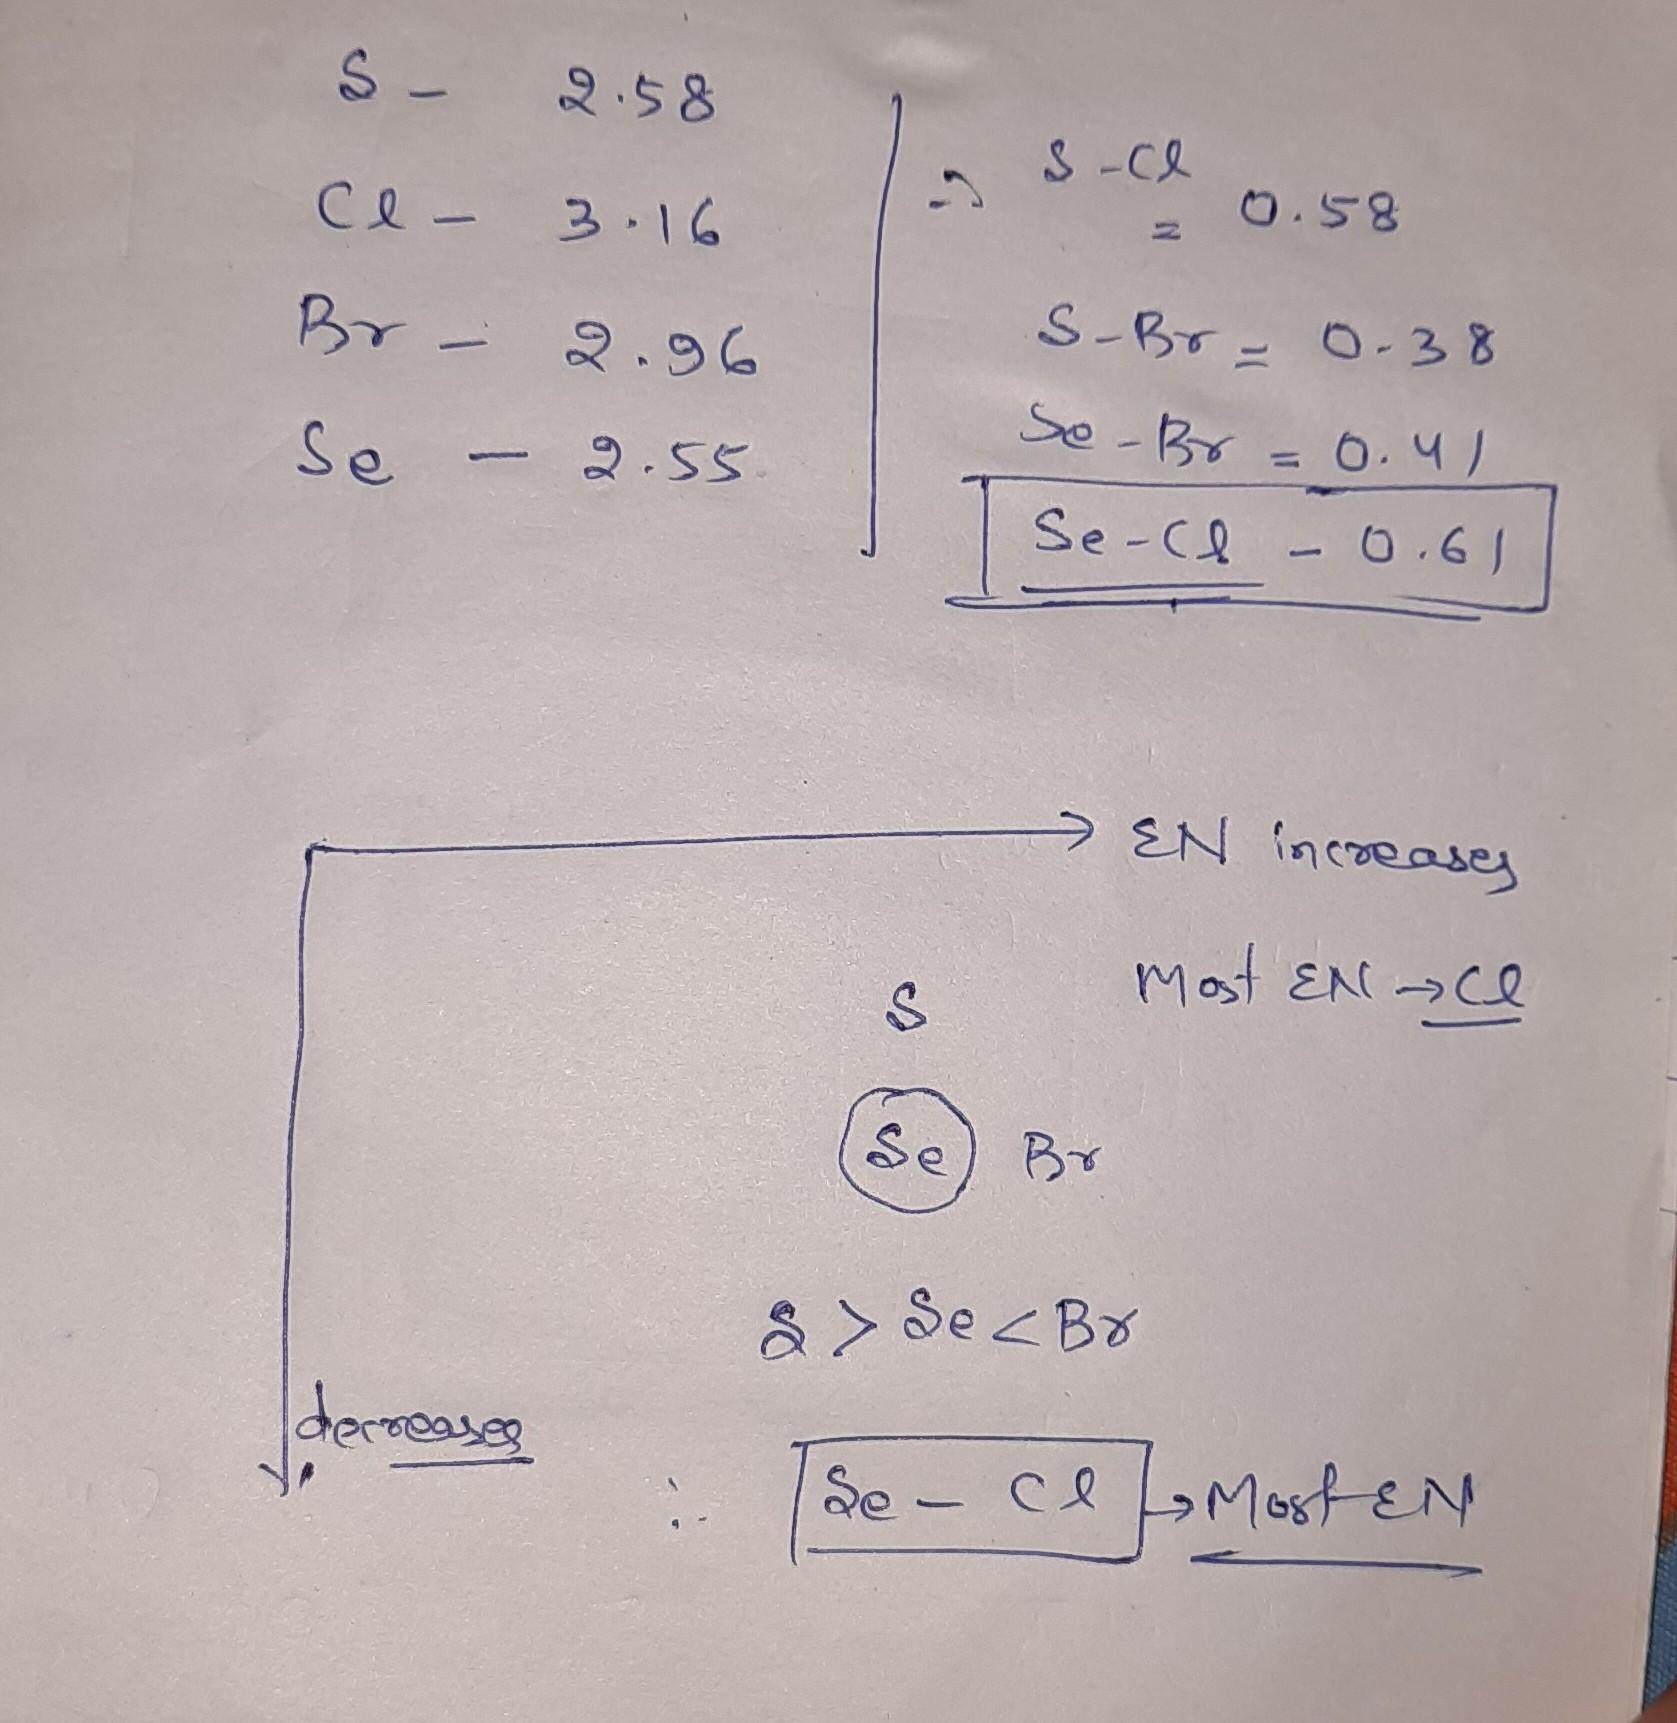 S - 2.58
Cl - 3.16
Br - 2.96
Se - 2.55
⇒ S-Cl
= 0.58
S-Br = 0.38
Se-Br = 0.41
Se-Cl - 0.61
→ EN increases
Most EN → Cl
S
Se Br
S > Se < Br
decreases
∴ Se - Cl → Most EN